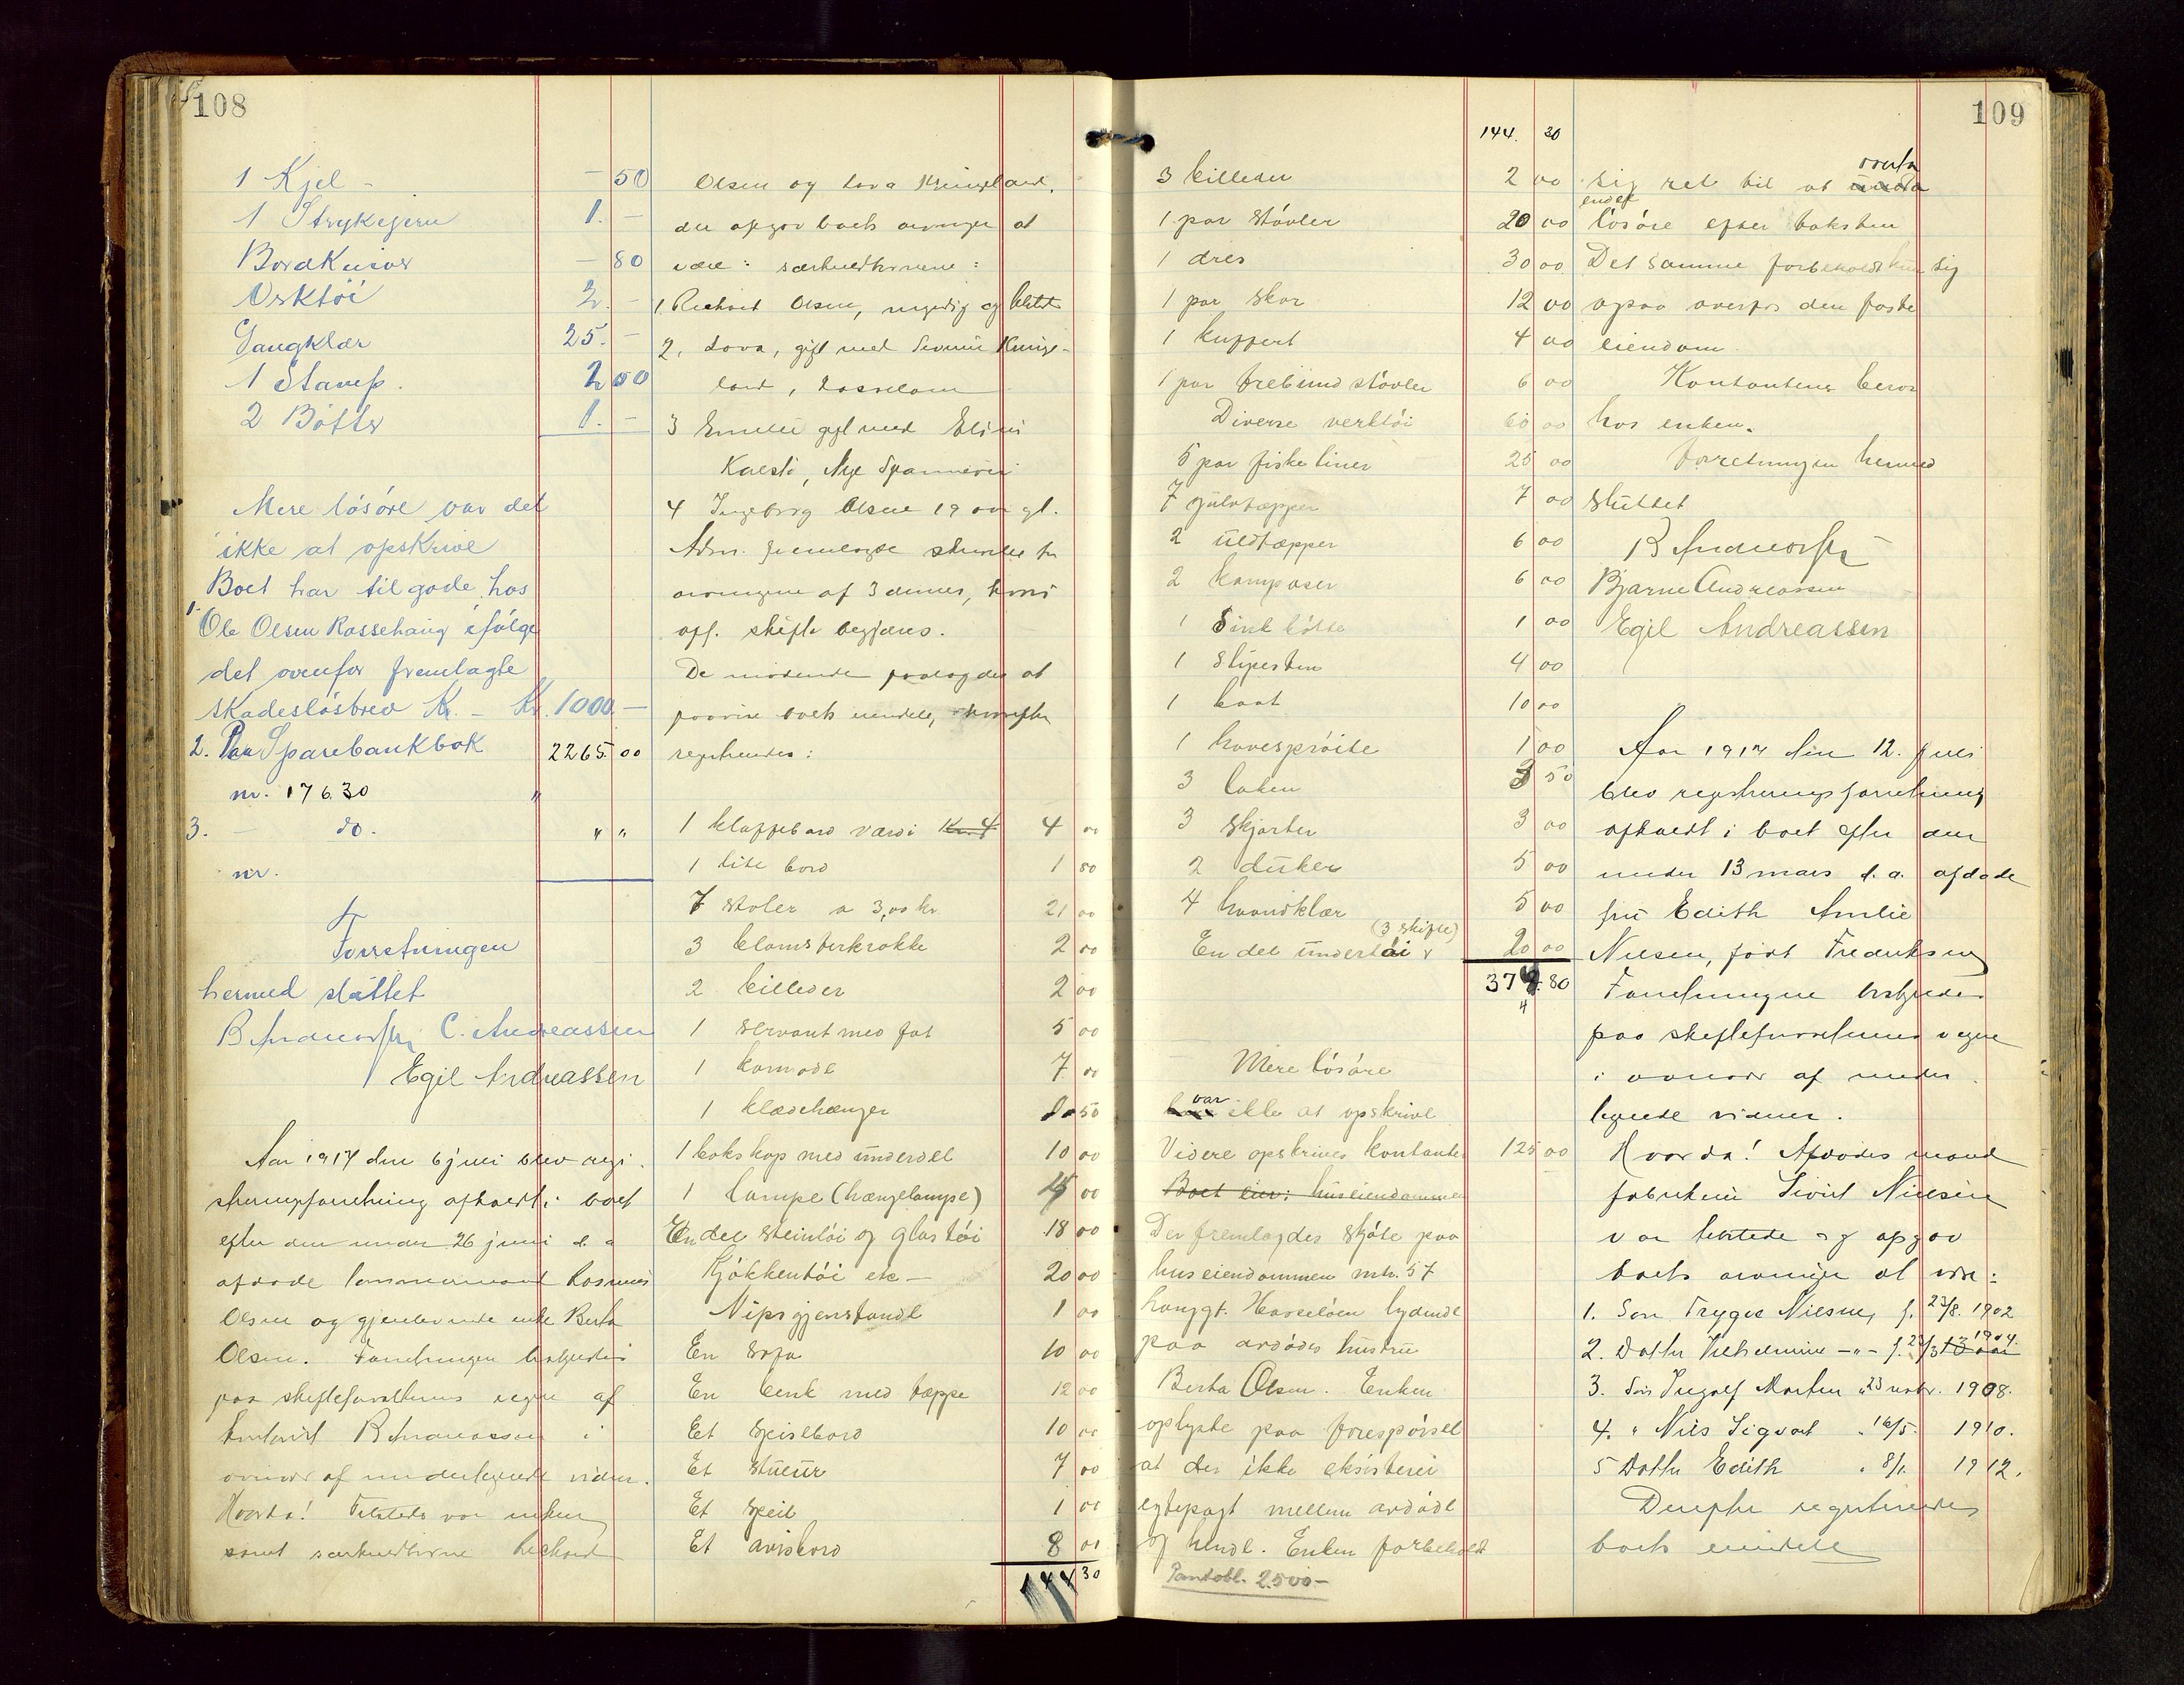 108
1 Kjel - — 50
1 Strykejern 1. —
Bordkniver — 80
Vesktöi 2. —
Gangklær 25. —
1 Stamp. 2 50
2 Bötter 1. —
Mere lösöre var det
ikke at opskrive
Boet har tilgode hos
1. Ole Olsen Rossehaug ifölge
det ovenfor fremlagte
skadeslösbrev Kr. — Kr. 1000 —
2. Paa Sparebankbok 2265. 00
nr. 17630 "
3. — do. " "
nr.
Forretningen
hermed sluttet
B Andreassen C. Andreassen
Egil Andreassen
Aar 1917 den 6 juli blev regi-
streringsforretning afholdt i boet
efter den under 26 juni d. a
afdøde tømmermand Rasmus
Olsen og gjenlevende enke Berta
Olsen. Forretningen bestyrtes
paa skifteforvalterens vegne af
B Andreassen i
overvær af underlegnede vidner.
Hvorda! Tilstede var enken
samt særkuldbarnene Richard
Olsen og Lova
der opgav boets arvinger at
være: særkuldbarnene:
1. Richard Olsen, myndig og tilstede
2. Lova, gift med
land,
3 Emelie gift med
4 Ingeborg Olsen 19 aar gl.
Adm. fremlagde skrivelse fra
arvingerne af 3 dennes, hvori
off. skifte begjæres.
De mødende paalagdes at
paavise boets eiendele, hvorefter
registreredes:
1 klappebord værdi Kr. 4 4 00
1 lite bord 1 80
7 stoler a 3,00 kr. 21 00
3 blomsterkrukke 2 00
2 billeder 2 00
1 servant med fat 5 00
1 komode 7. 00
1 klædehænger 50
1 bokskap med underdel 10 00
1 lampe (hængelampe) 00
En del steintöi og glastöi 18 00
Kjökkentöi etc — 20 00
Nipsgjenstande 1 00
En sofa 10 00
En benk med tæppe 12 00
Et spisebord 10 00
Et stueur 7 00
Et speil 1 00
Et avisbord 8 00
144 30
109
144. 30
3 billeder 2 00
1 par stövler 20 00
1 dres 30 00
1 par skor 12 00
1 kuffert 4 00
1 par træbund stövler 6 00
Diverse verktöi 60 00
5 par fiskeliner 25 00
7 gulvtæpper 7 00
2 uldtæpper 6 00
2 kamposer 6 00
1 Sink bötte 1 00
1 slipesten 4 00
1 baat 10 00
1 havespröite 1 00
3 laken 3 50
3 skjorter 3 00
2 duker 5 00
4 haandklær 5 00
En del undertöi (3 skifte) 20 00
80
Mere lösöre
var ikke at opskrive
Videre opskrives kontanter 125 00
Boet eier: huseiendommen
Der fremlagdes skjöte paa
huseiendommen mtr. 57
Haugt. Hasselöen lydende
paa avdödes hustru
Berta Olsen. Enken
oplyste paa forespörsel
at der ikke eksisterer
egtepagt mellem avdöde
og hende. Enken forbeholdt
Pantobl. 2500 —
sig ret til at overta
endel lösöre efter taksten
Det samme forbeholdt hun sig
ogsaa overfor den faste
eiendom
Kontantene beror
hos enken.
Forretningen hermed
sluttet
B Andreassen
Bjarne Andreassen
Egil Andreassen
Aar 1917 den 12. juli
blev registreringsforretning
afholdt i boet efter den
under 13 mars d. a. afdøde
fru Edith Amlie
Nilsen, født Fredriksen
Forretningen bestyredes
paa skifteforvalterens vegne
i overvær af under-
tegnede vidner.
Hvorda! Afdødes mand
Sivert Nilsen
var tilstede og opgav
boets arvinger at være:
1. Søn Trygve Nilsen, f. 23/8. 1902
2. Datter Vilhelmine —"— f. 1904.
3. Søn Ingolf Morten " 23 novbr. 1908.
4. " Nils Sigvart " 16/5. 1910.
5 Datter Edith " 8/1. 1912.
Derefter registreredes
boets eiendele